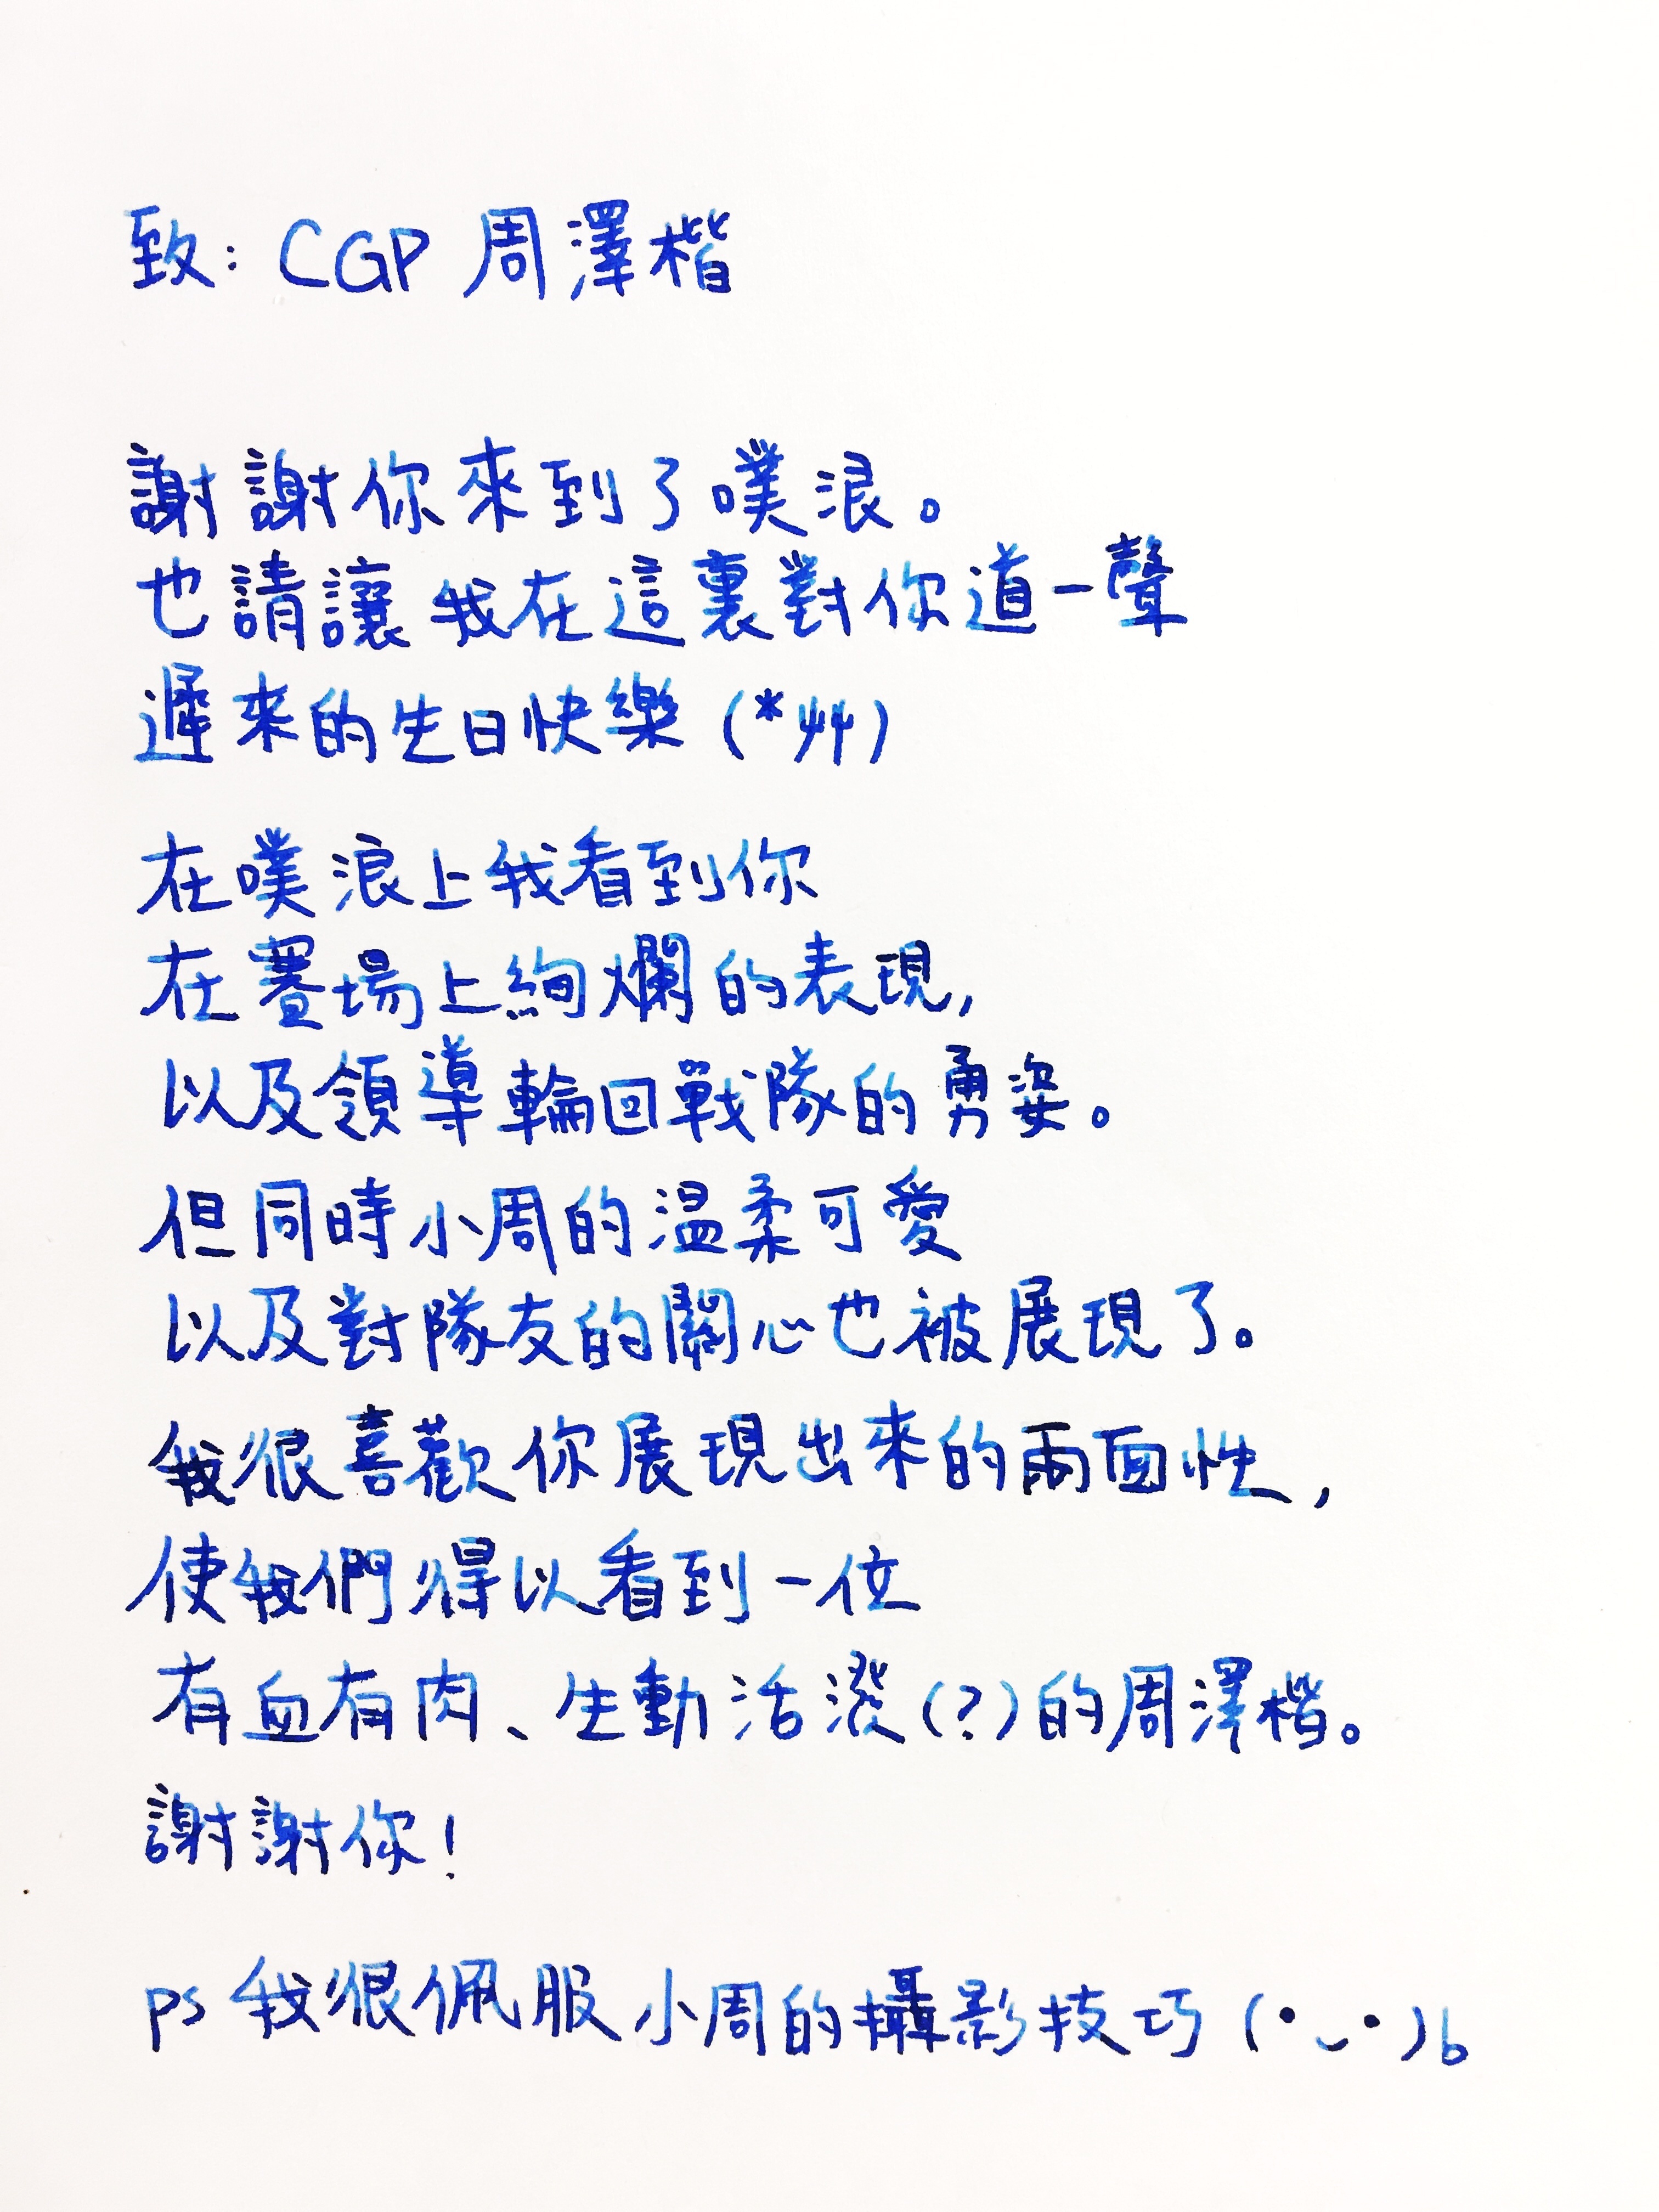 致：CGP 周澤楷
謝謝你來到了噗浪。
也請讓我在這裏對你道一聲
遲來的生日快樂 (*艸)
在噗浪上我看到你
在賽場上絢爛的表現，
以及領導輪回戰隊的勇姿。
但同時小周的温柔可愛
以及對隊友的關心也被展現了。
我很喜歡你展現出來的兩面性，
使我們得以看到一位
有血有肉、生動活潑(?)的周澤楷。
謝謝你！
ps 我很佩服小周的攝影技巧 (•⌣•)b